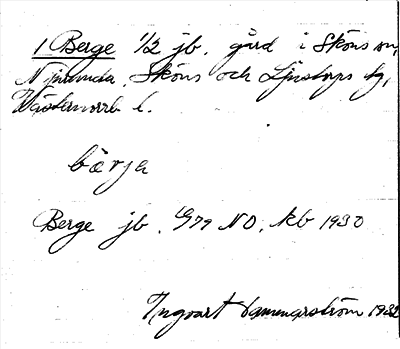 1 Berge 1/2 jb. gård i Sköns sn,
Njurunda, Sköns och Ljustorps tg,
Västernorrl l.
bærja
Berge jb. G79 NO, kb 1930
Ingvart Hammarström 1932